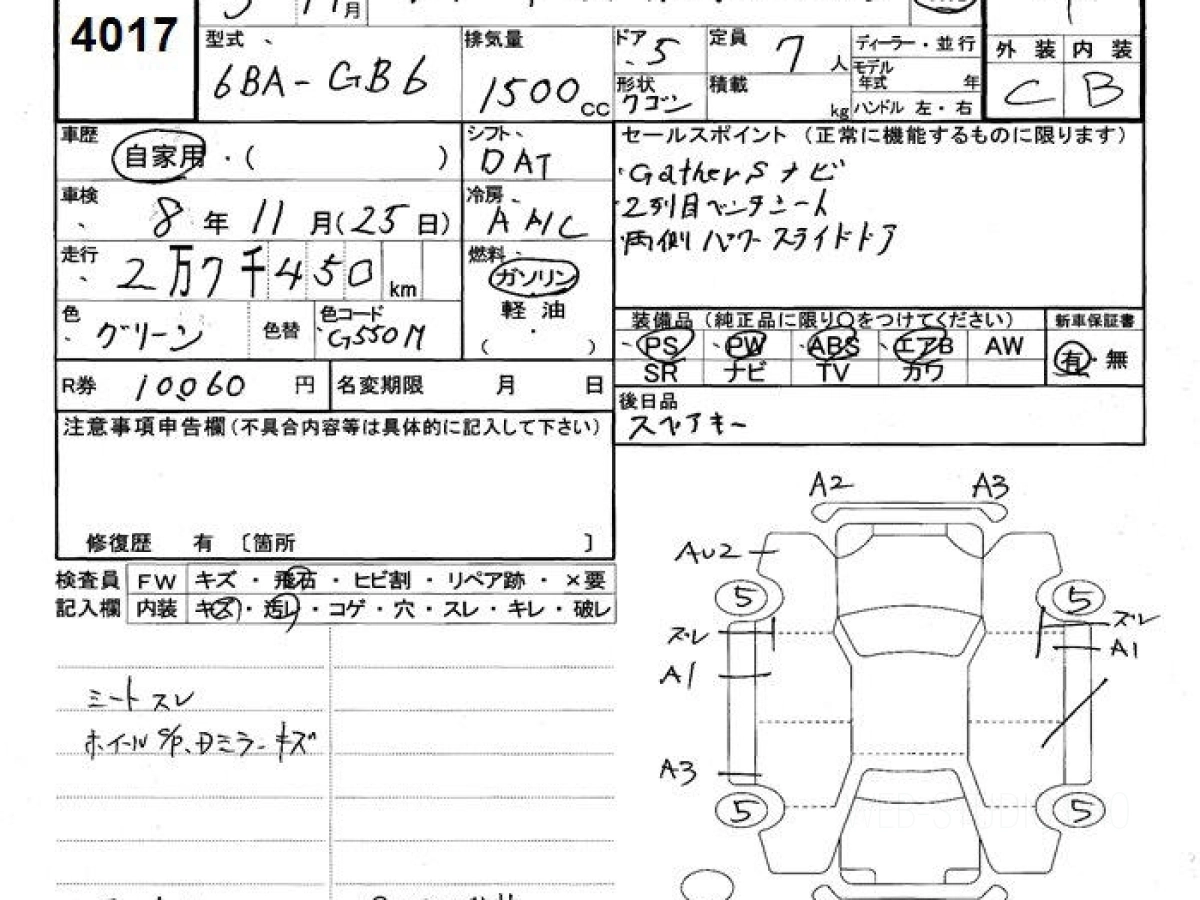 4017
月
型式 6BA-GB6
排気量 1500cc
ドア 5
定員 7人
ディーラー・並行
モデル年式 年
形状 ワゴン
積載 kg
ハンドル 左・右
外装 内装
C B
車歴 自家用・( )
シフト DAT
車検 8年11月(25日)
冷房 AAC
走行 2万7千450km
燃料 ガソリン
軽油
( )
色 グリーン
色替
色コード G550M
R券 10060円
名変期限 月 日
セールスポイント (正常に機能するものに限ります)
・Gathersナビ
・2列目ベンチシート
・両側パワースライドドア
装備品(純正品に限り〇をつけてください)
新車保証書
PS PW ABS エアB AW
有・無
SR ナビ TV カワ
後日品
スペアキー
注意事項申告欄(不具合内容等は具体的に記入して下さい)
修復歴 有 〔箇所 〕
検査員 FW キズ・飛石・ヒビ割・リペア跡・×要
記入欄 内装 キズ・汚レ・コゲ・穴・スレ・キレ・破レ
シートスレ
ホイールS/P、Dミラーキズ
A2 A3
AU2
5 5
ズレ ズレ
A1 A1
A3
5 5